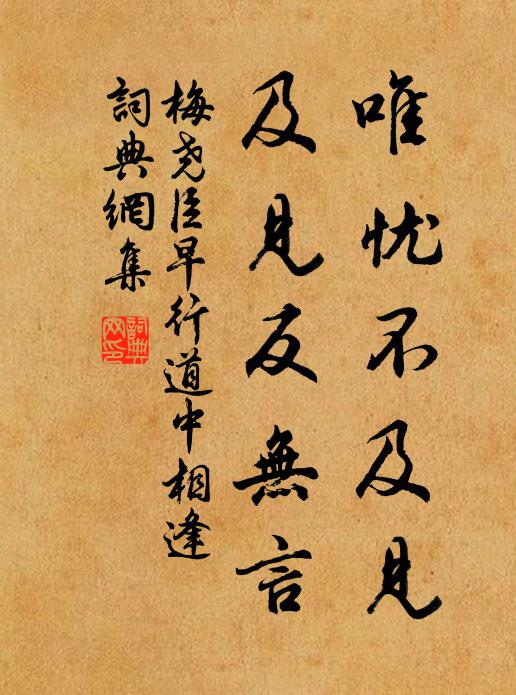 唯忧不及見
及見反無言
梅尧臣早行道中相逢
詞典網集
詞典
网印